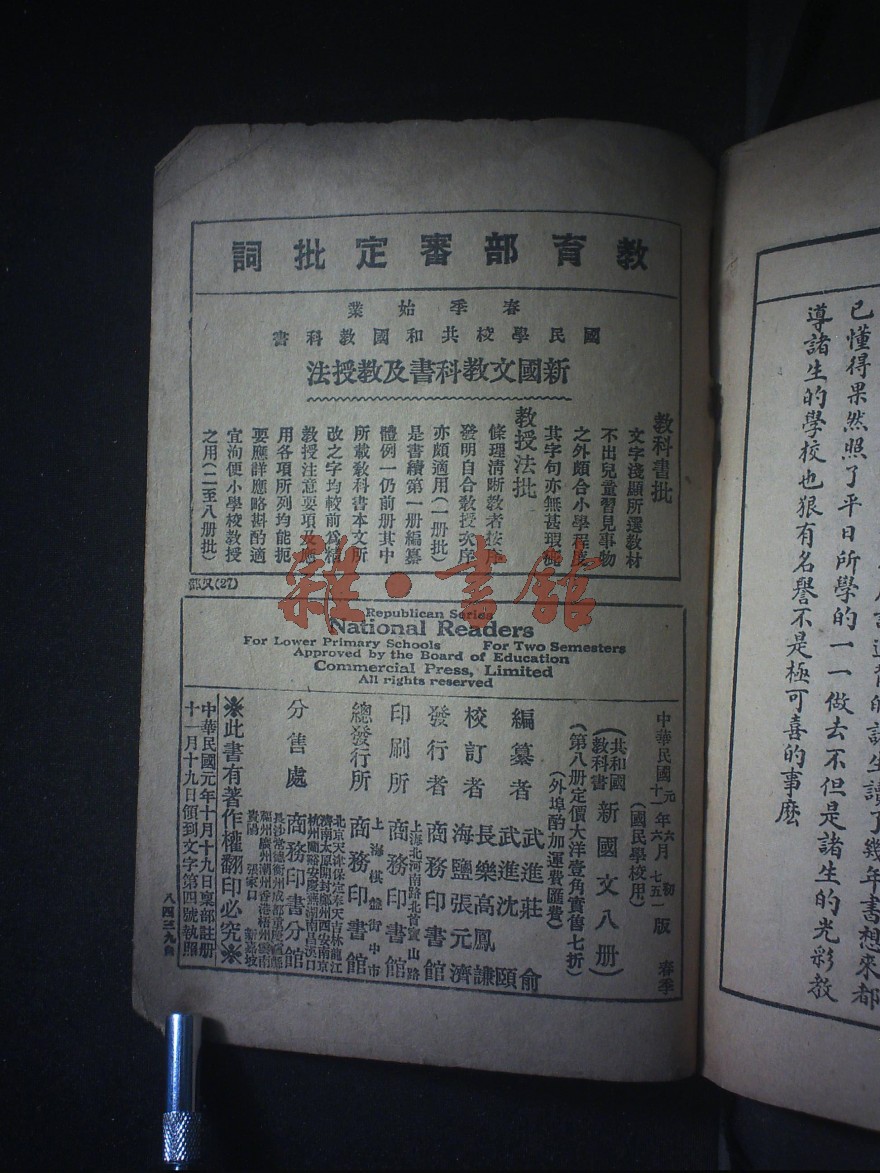 教育部審定批詞
春季始業
國民學校共和國教科書
新國文教科書及教授法
教科書批
文字淺顯所選教材
不出兒童習見事物
之外頗合小學程度
其字句亦無甚瑕疵
教授法批
條理清晰教者按序
發明自合教授次序
亦頗適用(一册批)
是書續第一册編纂
體例一仍前册其中
所載教科書本文所
改之字均較前爲精
教授注意要項及應
用各項所列均能扼
要應詳應略斟酌適
宜洵便小學校教授
之用(二至八册批)
雜·書館
Republican Series
National Readers
For Lower Primary Schools For Two Semesters
Approved by the Board of Education
Commercial Press, Limited
All rights reserved
中華民國
元年六月初版
十一年六月七五一版
春季
(國民學校用)
(共和國教科書新國文八册)
(第八册定價大洋壹角實售七折)
(外埠酌加運費匯費)
編纂者
武進莊俞
武進沈頤
校訂者
長樂高鳳謙
海鹽張元濟
發行者 商務印書館
上海北河南路北首寶山路
印刷所 商務印書館
上海棋盤街中市
總發行所 商務印書館
北京天津保定奉天吉林龍江
濟南太原開封鄭州西安南京
杭州蘭谿安慶蕪湖南昌漢口
分售處 商務印書分館
長沙常德衡州成都重慶
福州廣州潮州香港梧州雲南
貴陽 張家口 新嘉坡
※此書有著作權翻印必究※
中華民國元年十月十九日稟部註冊
十一月十九日領到文字第四號執照
八四三九
已懂得果然照了平日所學的一一做去不但是諸生的光彩教
導諸生的學校也狠有名譽不是極可喜的事麽